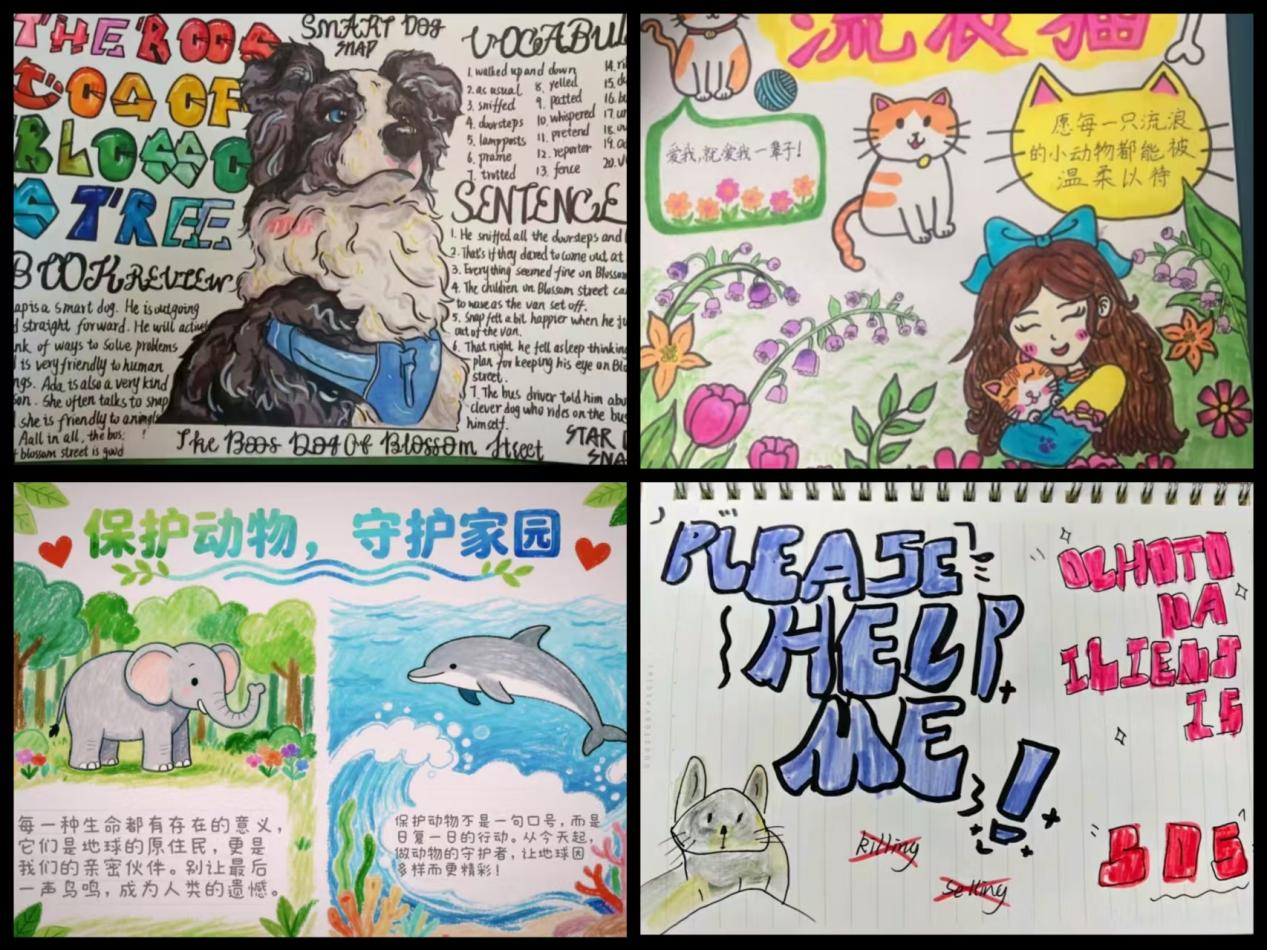 THE BOOS
DOG OF
BLOSSO
S TREE
SMART DOG
SNAP
VOCABUL
1. walked up and down
2. as usual
3. sniffed
4. doorsteps
5. lampposts
6. prame
7. trotted
8. yelled
9. patted
10. whispered
11. pretend
12. reporter
13. fence
14. ri
15. d
16. b
17. u
18. w
19. a
20. v
SENTENCE
1. He sniffed all the doorsteps and
2. That's if they dared to come out at
3. Everything seemed fine on Blossom
4. The children on Blossom street ca
to wave as the van set off.
5. Snap felt a bit happier when he ju
out of the van.
6. That night he fell asleep thinking
plan for keeping his eye on Blo
street.
7. The bus driver told him abo
clever dog who rides on the bus
himself.
BOOK REVIEW
ap is a smart dog. He is outgoing
d straight forward. He will active
nk of ways to solve problems
is very friendly to human
ngs. Ada is also a very kind
son. She often talks to snap
she is friendly to animals
Aall in all, the bus:
blossom street is good
The Boos Dog Of Blossom Street
STAR
SNA
流浪猫
爱我,就爱我一辈子!
愿每一只流浪
的小动物都能被
温柔以待
保护动物，守护家园
每一种生命都有存在的意义，
它们是地球的原住民，更是
我们的亲密伙伴。别让最后
一声鸟鸣，成为人类的遗憾。
保护动物不是一句口号，而是
日复一日的行动。从今天起，
做动物的守护者，让地球因
多样而更精彩！
PLEASE
HELP
ME
!
Killing
Selling
NA
IS
SOS